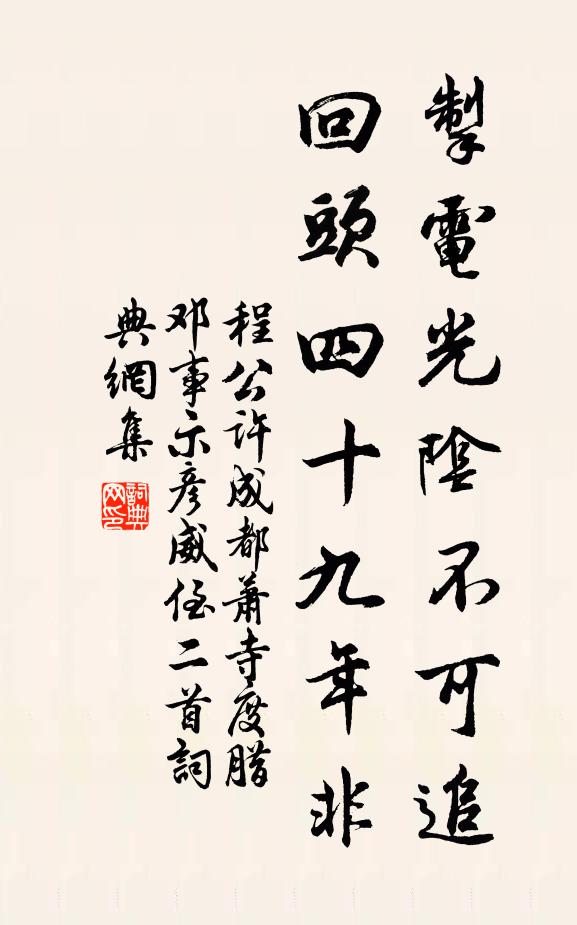 掣電光陰不可追
回頭四十九年非
程公許成都蕭寺度腊
邓事示彦威侄二首詞
典網集
詞典
网印